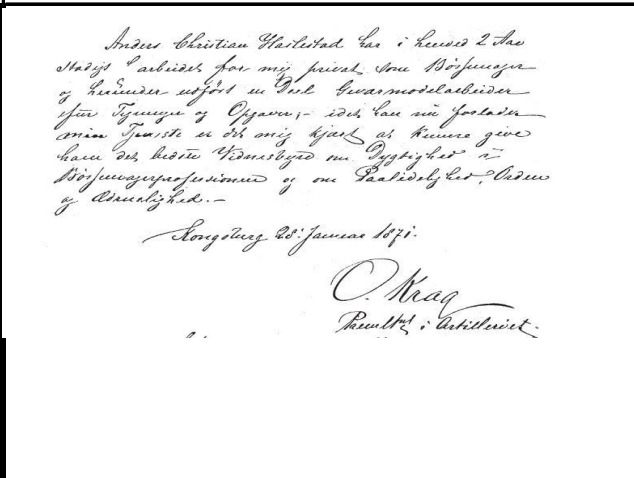 Anders Christian Haslestad har i henved 2 Aar
stadigt arbeidet for mig privat som Bössemager
og herunder udført en Deel Geværmodelarbeider
efter Tegninger og Opgaver; – idet han nu forlader
min Tjeneste er det mig kjært at kunne give
ham det bedste Vidnesbyrd om Dygtighed i
Bössemagerprofessionen og om Paalidelighed, Orden
og Ædruelighed. –
Kongsberg 28: Januar 1871.
O. Krag
i Artilleriet.